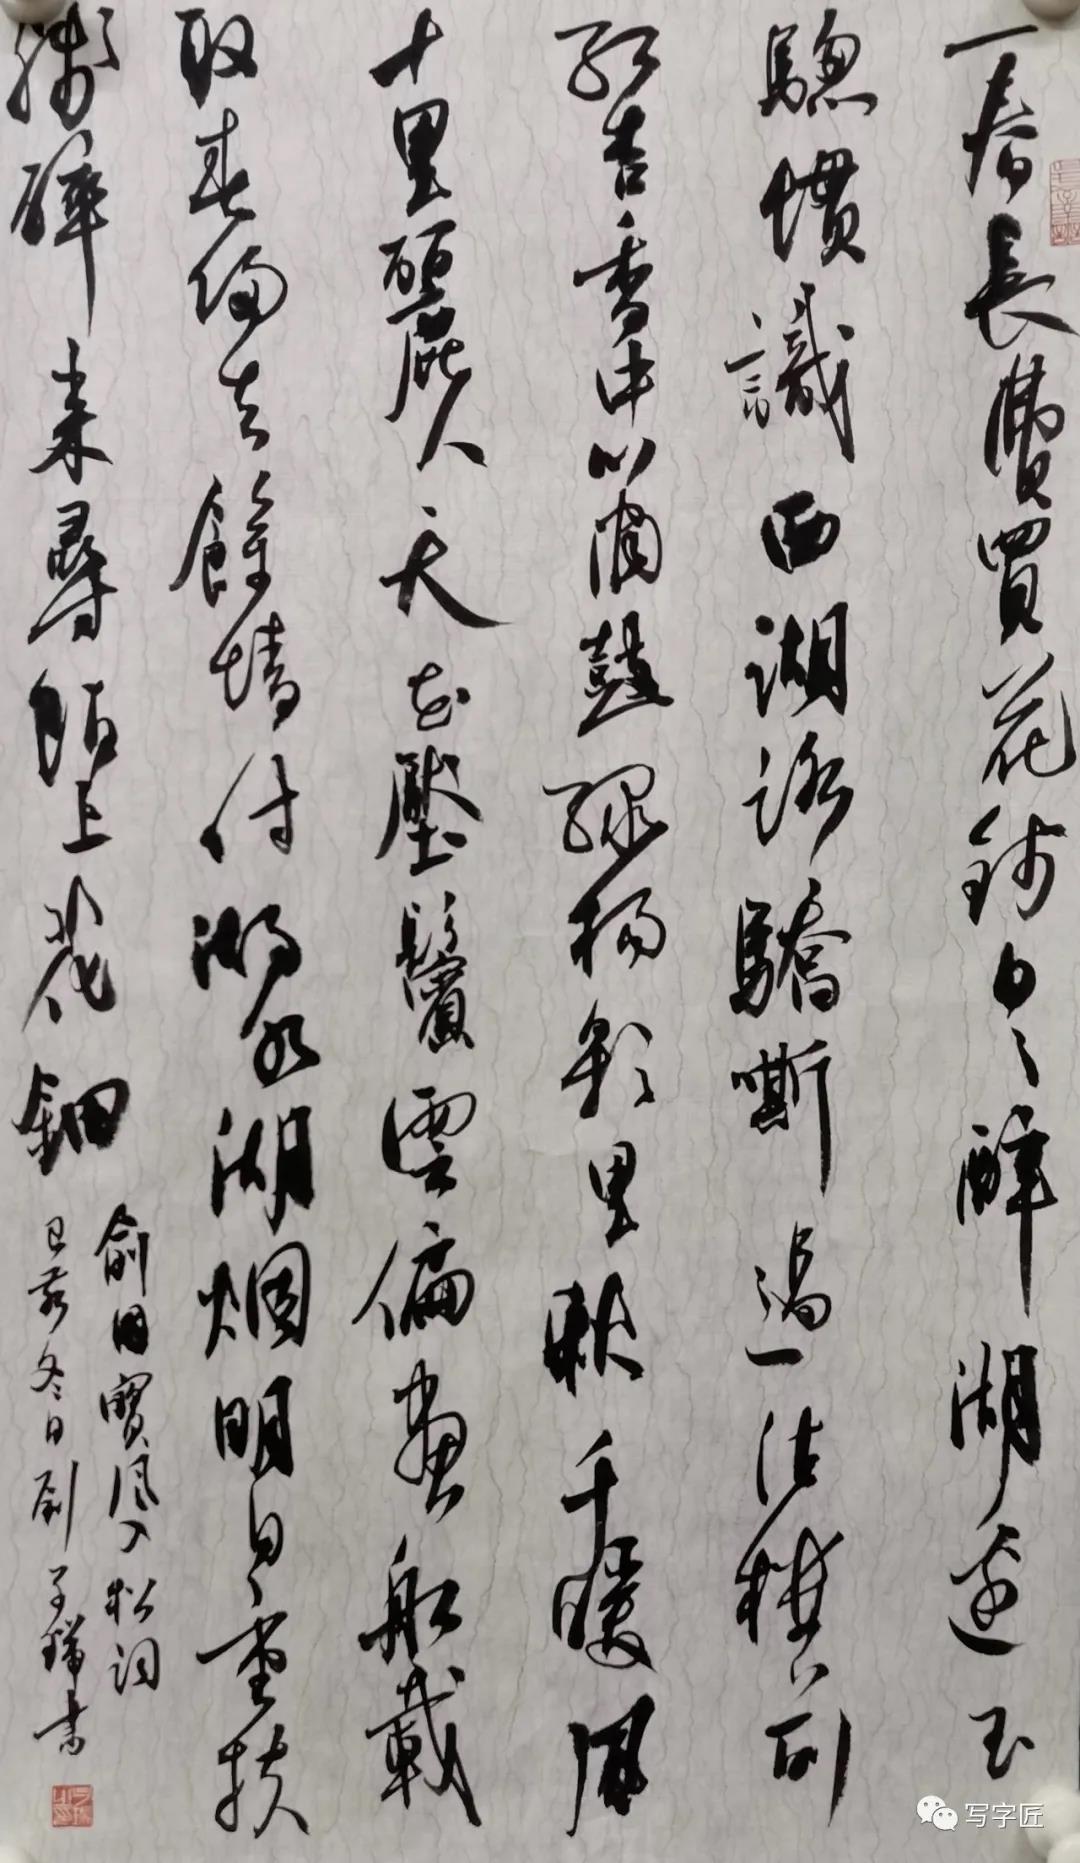 一春長費買花錢日日醉湖邊玉
驄慣識西湖路驕嘶過沽酒樓前
紅杏香中簫鼓綠楊影里鞦千暖風
十里麗人天花壓鬢雲偏畫船載
取春歸去餘情付湖水湖烟明日重扶
殘醉來尋陌上花鈿
俞國寶風入松詞
己亥冬日劉子瑞書
写字匠